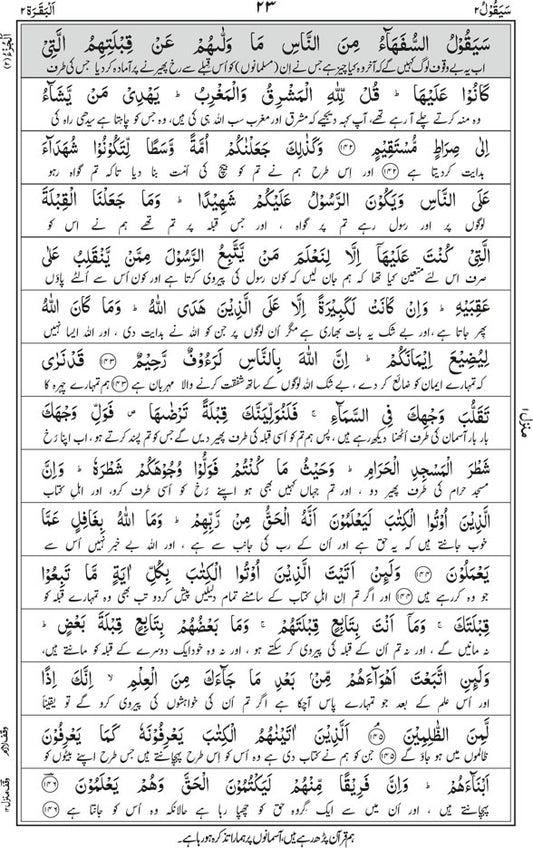 سَيَقُوۡلُ ٢ ٢٣ اَلۡبَقَرَة ٢
سَيَقُوۡلُ السُّفَهَآءُ مِنَ النَّاسِ مَا وَلّٰىهُمۡ عَنۡ قِبۡلَتِهِمُ الَّتِىۡ
اب یہ بے وقوف لوگ کہیں گے کہ آخر وہ کیا چیز ہے جس نے اِن (مسلمانوں) کو اُس قبلے سے رخ پھیرنے پر آمادہ کر دیا جس کی طرف
كَانُوۡا عَلَيۡهَا ؕ قُلۡ لِّلّٰهِ الۡمَشۡرِقُ وَالۡمَغۡرِبُ ؕ يَهۡدِىۡ مَنۡ يَّشَآءُ
وہ منہ کرتے چلے آ رہے تھے، آپ کہہ دیجیے کہ مشرق اور مغرب سب اللہ ہی کی ہیں، وہ جس کو چاہتا ہے سیدھی راہ کی
اِلٰى صِرَاطٍ مُّسۡتَقِيۡمٍ ﴿١٤٢﴾ وَكَذٰلِكَ جَعَلۡنٰكُمۡ اُمَّةً وَّسَطًا لِّتَکُوۡنُوۡا شُهَدَآءَ
ہدایت کر دیتا ہے ﴿١٤٢﴾ اور اِس طرح ہم نے تم کو بیچ کی اُمت بنا دیا تاکہ تم گواہ رہو
عَلَى النَّاسِ وَيَكُوۡنَ الرَّسُوۡلُ عَلَيۡكُمۡ شَهِيۡدًا ؕ وَمَا جَعَلۡنَا الۡقِبۡلَةَ
لوگوں پر اور رسول رہے تم پر گواہ ، اور جس قبلہ پر تم تھے ہم نے اس کو
الَّتِىۡ كُنۡتَ عَلَيۡهَآ اِلَّا لِنَعۡلَمَ مَنۡ يَّتَّبِعُ الرَّسُوۡلَ مِمَّنۡ يَّنۡقَلِبُ عَلٰى
صرف اس لئے متعین کیا تھا کہ ہم جان لیں کہ کون رسول کی پیروی کرتا ہے اور کون اُس سے اُلٹے پاؤں
عَقِبَيۡهِ ؕ وَاِنۡ كَانَتۡ لَكَبِيۡرَةً اِلَّا عَلَى الَّذِيۡنَ هَدَى اللّٰهُ ؕ وَمَا كَانَ اللّٰهُ
پھر جاتا ہے، اور بے شک یہ بات بھاری ہے مگر اُن لوگوں پر جن کو اللہ نے ہدایت دی ، اور اللہ ایسا نہیں
لِيُضِيْعَ اِيۡمَانَكُمۡ ؕ اِنَّ اللّٰهَ بِالنَّاسِ لَرَءُوۡفٌ رَّحِيۡمٌ ﴿١٤٣﴾ قَدۡ نَرٰى
کہ تمہارے ایمان کو ضائع کر دے ، بے شک اللہ لوگوں کے ساتھ شفقت کرنے والا مہربان ہے ﴿١٤٣﴾ ہم تمہارے چہرہ کا
تَقَلُّبَ وَجۡهِكَ فِى السَّمَآءِ ۚ فَلَنُوَلِّيَنَّكَ قِبۡلَةً تَرۡضٰٮهَا ۪ فَوَلِّ وَجۡهَكَ
بار بار آسمان کی طرف اُٹھنا دیکھ رہے ہیں، پس ہم تم کو اُسی قبلہ کی طرف پھیر دیں گے جس کو تم پسند کرتے ہو، اب اپنا رخ
شَطۡرَ الۡمَسۡجِدِ الۡحَـرَامِ ؕ وَحَيۡثُ مَا كُنۡتُمۡ فَوَلُّوۡا وُجُوۡهَكُمۡ شَطۡرَهٗ ؕ وَاِنَّ
مسجد حرام کی طرف پھیر دو ، اور تم جہاں کہیں بھی ہو اپنے رُخ کو اُسی طرف کرو، اور اہلِ کتاب
الَّذِيۡنَ اُوۡتُوا الۡكِتٰبَ لَيَـعۡلَمُوۡنَ اَنَّهُ الۡحَـقُّ مِنۡ رَّبِّهِمۡ ؕ وَمَا اللّٰهُ بِغَافِلٍ عَمَّا
خوب جانتے ہیں کہ یہ حق ہے اور اُن کے رب کی جانب سے ہے ، اور اللہ بے خبر نہیں اُس سے
يَعۡمَلُوۡنَ ﴿١٤٤﴾ وَلَئِنۡ اَ تَيۡتَ الَّذِيۡنَ اُوۡتُوا الۡكِتٰبَ بِكُلِّ اٰيَةٍ مَّا تَبِعُوۡا
جو وہ کر رہے ہیں ﴿١٤٤﴾ اور اگر تم اِن اہلِ کتاب کے سامنے تمام دلیلیں پیش کر دو تب بھی وہ تمہارے قبلہ کو
قِبۡلَتَكَ ۚ وَمَآ اَنۡتَ بِتَابِعٍ قِبۡلَتَهُمۡ ۚ وَمَا بَعۡضُهُمۡ بِتَابِعٍ قِبۡلَةَ بَعۡضٍ ؕ
نہ مانیں گے ، اور نہ تم اُن کے قبلہ کی پیروی کر سکتے ہو ، اور نہ وہ خود ایک دوسرے کے قبلہ کو مانتے ہیں،
وَلَئِنِ اتَّبَعۡتَ اَهۡوَآءَهُمۡ مِّنۡۢ بَعۡدِ مَا جَآءَكَ مِنَ الۡعِلۡمِ ۙ اِنَّكَ اِذًا
اور اُس علم کے بعد جو تمہارے پاس آچکا ہے اگر تم اُن کی خواہشوں کی پیروی کرو گے تو یقیناً
لَّمِنَ الظّٰلِمِيۡنَ ﴿١٤٥﴾ اَلَّذِيۡنَ اٰتَيۡنٰهُمُ الۡكِتٰبَ يَعۡرِفُوۡنَهٗ كَمَا يَعۡرِفُوۡنَ
ظالموں میں ہو جاؤ گے ﴿١٤٥﴾ جن کو ہم نے کتاب دی ہے وہ اُس کو اِس طرح پہچانتے ہیں جس طرح اپنے بیٹوں کو
اَبۡنَآءَهُمۡ ؕ وَاِنَّ فَرِيۡقًا مِّنۡهُمۡ لَيَكۡتُمُوۡنَ الۡحَـقَّ وَهُمۡ يَعۡلَمُوۡنَ ﴿١٤٦﴾
پہچانتے ہیں ، اور اُن میں سے ایک گروہ حق کو چھپا رہا ہے حالانکہ وہ اُس کو جانتا ہے ﴿١٤٦﴾
ہم قرآن پڑھ رہے ہیں، آسمانوں پر ہمارا تذکرہ ہو رہا ہے۔
منزل ١
اَلۡجُزۡءُ (٢)
وقف لازم
وقف منزل